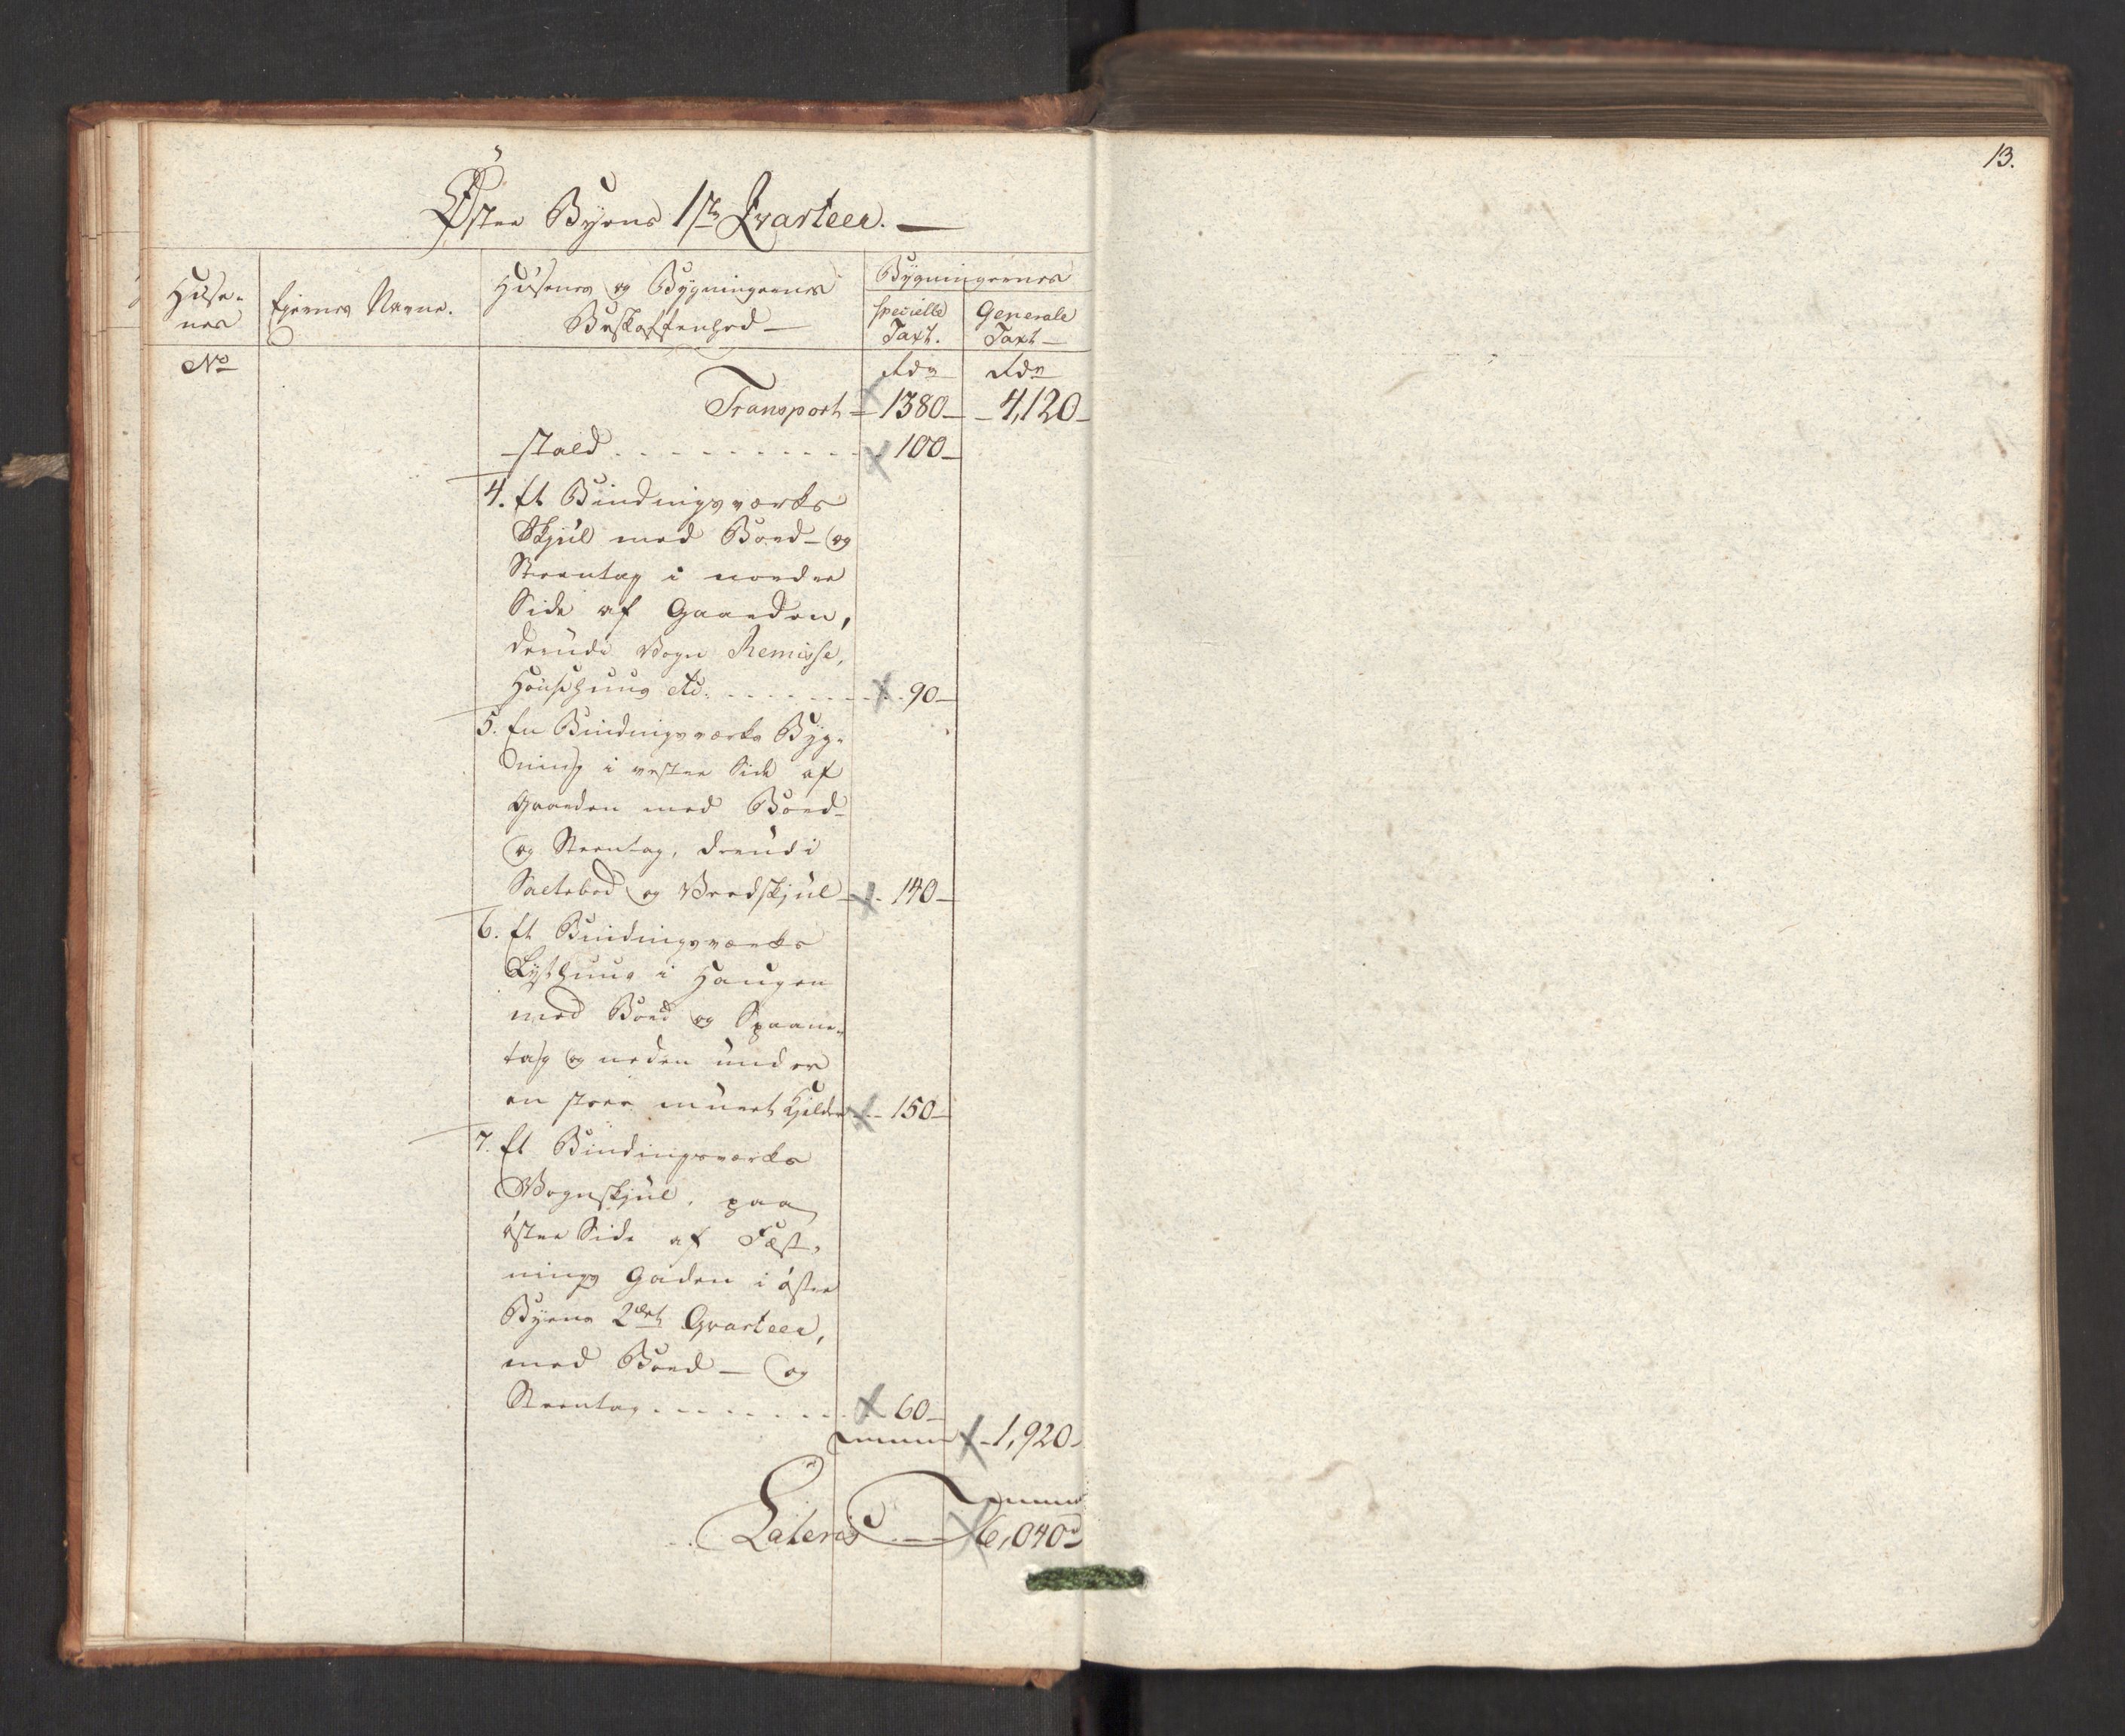 13.
Øster Byens 1ste Qvarteer.
Huse-
nes
No
Ejernes Navne.
Husenes og Bygningernes
Beskaffenhed
Bygningernes
specielle
Taxt.
Generale
Taxt
Rdr
Rdr
Transport 1380 4,120
stald 100
4. Et Bindingsværks
Skjul med Bord- og
Steentag i nordre
Side af Gaarden,
derudi Vogn Remisse,
Hønsehuus etc. 90
5. En Bindingsværks Byg-
ning i vestre Side af
Gaarden med Bord-
og Steentag, derudi
Saltebod og Vedskjul 140
6. Et Bindingsværks
Lysthuus i Haugen
med Bord og Spaane-
tag og neden under
en stor muret Kjelder 150
7. Et Bindingsværks
Vognskjul, paa
østre Side af Fæst-
nings Gaden i øster
Byens 2det Qvarteer,
med Bord- og
Steentag 60
1,920
Lateris 6,040